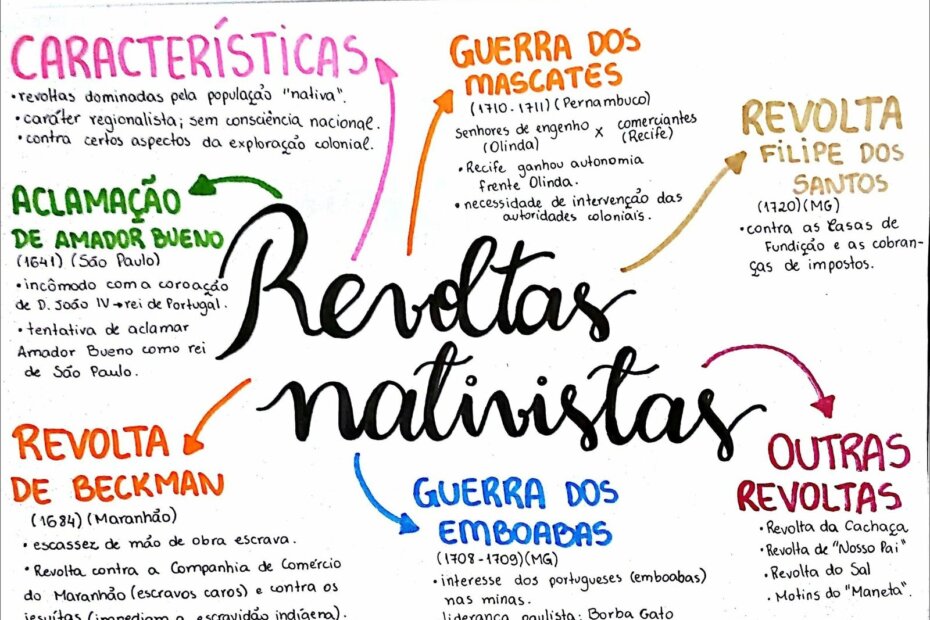 CARACTERÍSTICAS
• revoltas dominadas pela população "nativa".
• caráter regionalista; sem consciência nacional.
• contra certos aspectos da exploração colonial.
GUERRA DOS
MASCATES
(1710 - 1711) (Pernambuco)
senhores de engenho x comerciantes
(Olinda) (Recife)
• Recife ganhou autonomia
frente Olinda.
• necessidade de intervenção das
autoridades coloniais.
REVOLTA
FILIPE DOS
SANTOS
(1720) (MG)
• contra as Casas de
Fundição e as cobran-
ças de impostos.
ACLAMAÇÃO
DE AMADOR BUENO
(1641) (São Paulo)
• incômodo com a coroação
de D. João IV → rei de Portugal.
• tentativa de aclamar
Amador Bueno como rei
de São Paulo.
Revoltas
nativistas
REVOLTA
DE BECKMAN
(1684) (Maranhão)
• escassez de mão de obra escrava.
• Revolta contra a Companhia de Comércio
do Maranhão (escravos caros) e contra os
jesuítas (impediam a escravidão indígena).
GUERRA DOS
EMBOABAS
(1708 - 1709) (MG)
• interesse dos portugueses (emboabas)
nas minas.
liderança paulista: Borba Gato
OUTRAS
REVOLTAS
• Revolta da Cachaça
• Revolta de "Nosso Pai"
• Revolta do Sal
• Motins do "Maneta".